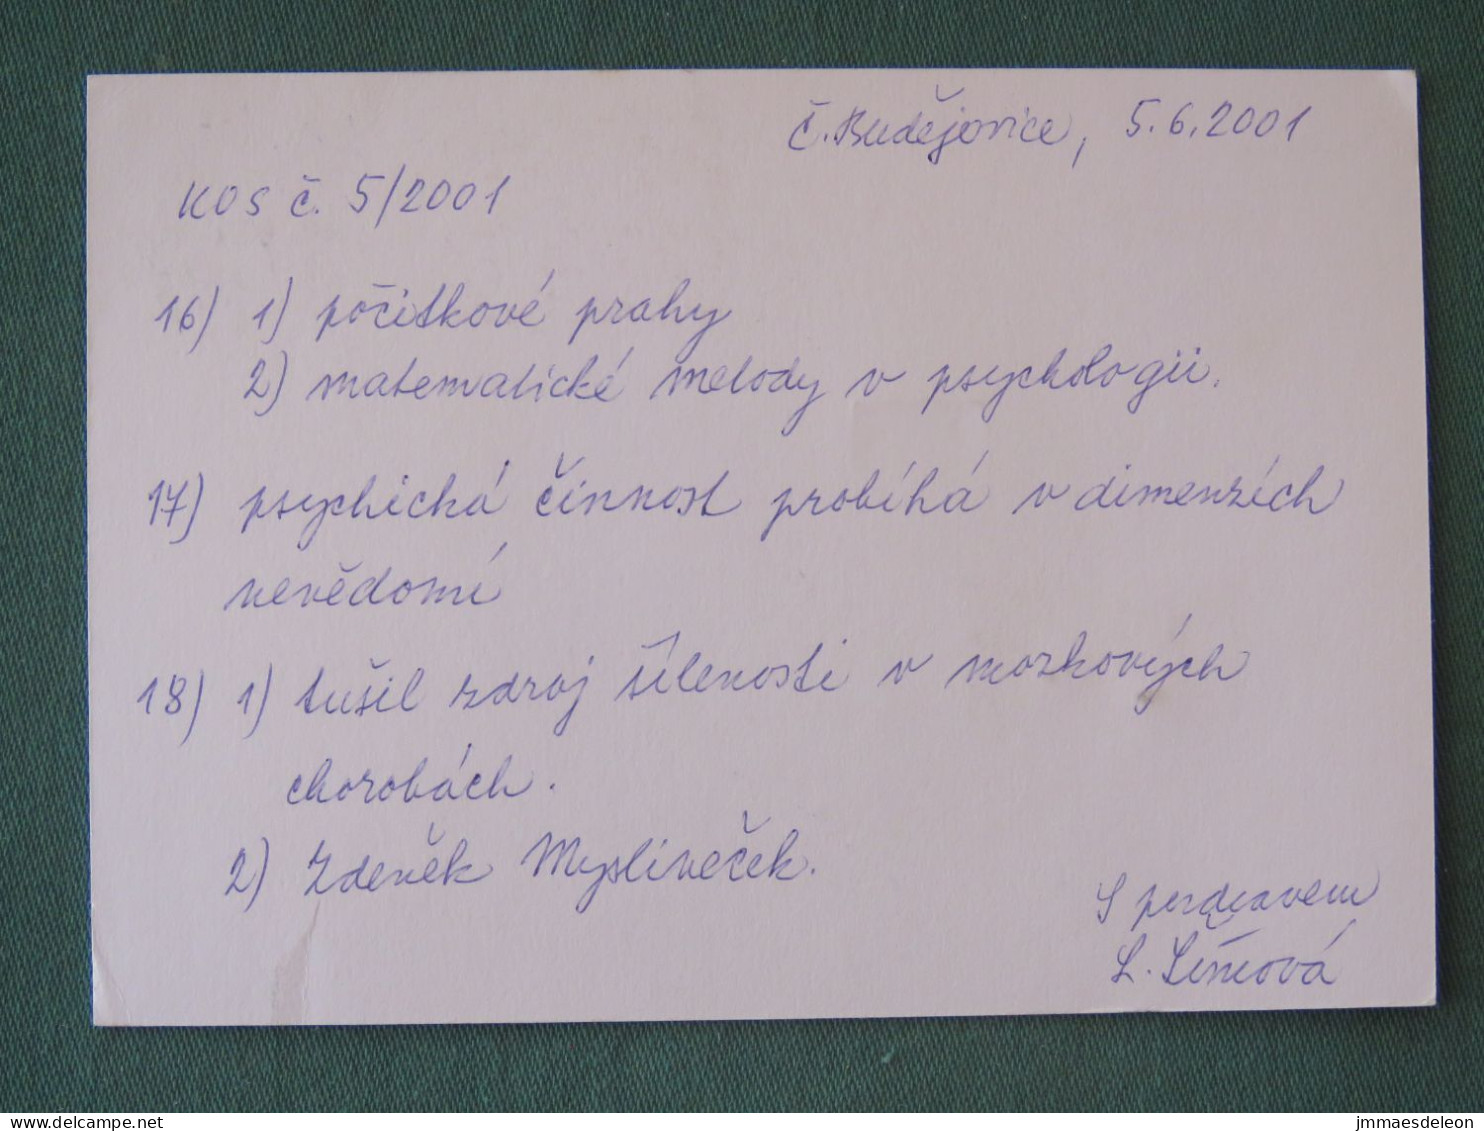 Č. Budějovice, 5.6.2001
KOS č. 5/2001
16) 1) počitkové prahy
2) matematické metody v psychologii.
17) psychická činnost probíhá v dimenzích
nevědomí
18) 1) tušil zdroj šílenosti v mozkových
chorobách.
2) Zdeněk Mysliveček.
S pozdravem
L.
delcampe.net
jmmaesdeleon